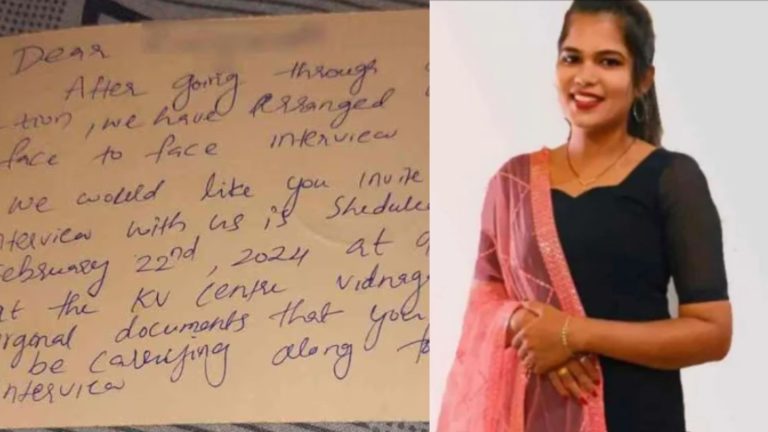 Dear
After going through
-tion, we have Arranged
face to face interview
we would like you Invite
interview with us is Shedule
February 22nd, 2024 at
at the KV Centre vidnag
orginal documents that you
be carrying along to
interview